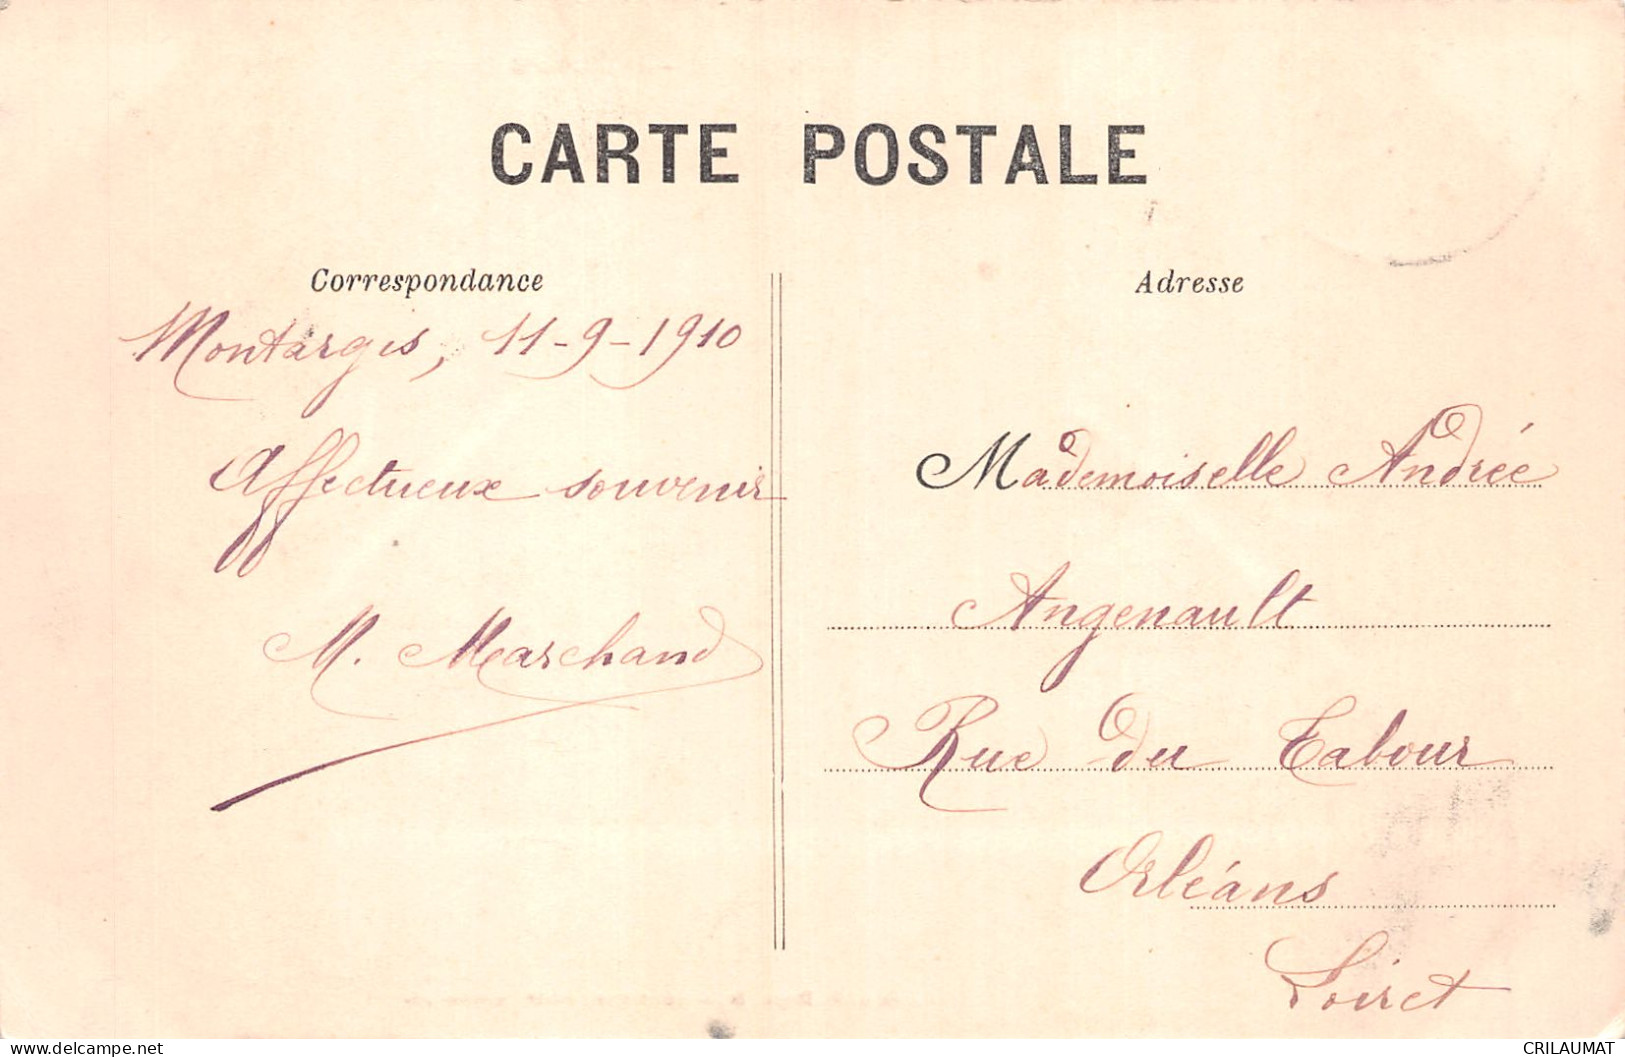 CARTE POSTALE
Correspondance
Montargis, 11-9-1910
Affectueux souvenir
M. Marchand
Adresse
Mademoiselle Andrée
Angenault
Rue du Tabour
Orléans
Loiret
www.delcampe.net
CRILAUMAT